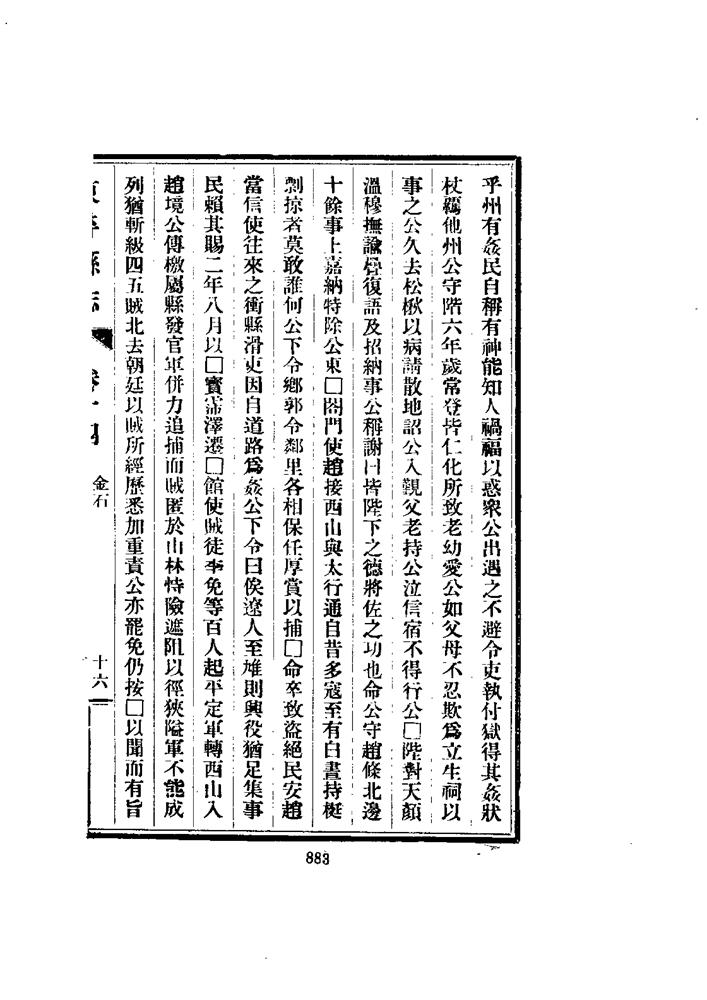 乎州有姦民自稱有神能知人禍福以惑衆公出遇之不避令吏執付獄得其姦狀
杖羈他州公守階六年歲常登皆仁化所致老幼愛公如父母不忍欺爲立生祠以
事之公久去松楸以病請散地詔公入覲父老持公泣信宿不得行公□陛對天顔
溫穆撫諭疊復語及招納事公稱謝曰皆陛下之德將佐之功也命公守趙條北邊
十餘事上嘉納特除公東□閤門使趙接西山與太行通自昔多寇至有白晝持梃
剽掠者莫敢誰何公下令鄉郭令鄰里各相保任厚賞以捕□命卒致盜絕民安趙
當信使往來之衝縣滑吏因自道路爲姦公下令曰俟遼人至雄則興役猶足集事
民賴其賜二年八月以□寳霈澤遷□館使賊徒李免等百人起平定軍轉西山入
趙境公傳檄屬縣發官軍併力追捕而賊匿於山林恃險遮阻以徑狹隘軍不能成
列猶斬級四五賊北去朝廷以賊所經歷悉加重責公亦罷免仍按□以聞而有旨
縣志
卷十四
金石
十六
883